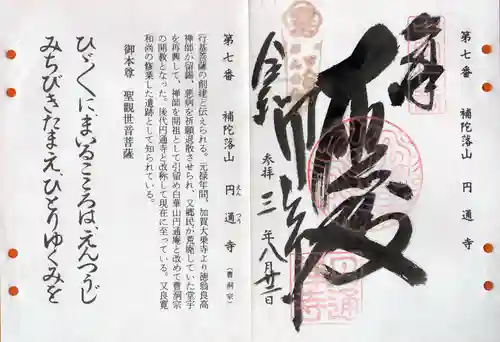 第七番 補陀落山 円通寺
奉拝
参拝 三年八月廿二日
円通寺
第七番 補陀落山 円通寺（曹洞宗）
えんつう
行基菩薩の創建と伝えられる。元禄年間、加賀大乗寺より徳翁良高
禅師が留錫、悪病を祈願退散させられ、又郷民が荒廃していた堂宇
を再興して、禅師を開祖として引留め白華山円通庵と改めて曹洞宗
の開教となった。後代円通寺と改称して現在に至っている。又良寛
和尚の修業した遺跡として知られている。
御本尊 聖観世音菩薩
ひゞくにまいるこころは、えんつうじ
みちびきたまえ、ひとりゆくみを